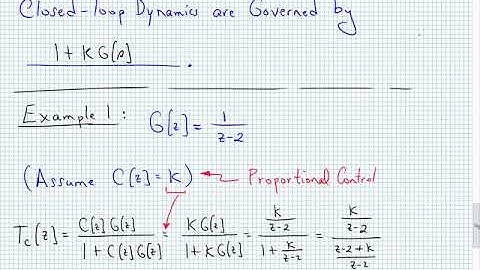 Closed-loop Dynamics are Governed by
1 + K G[z] .
Example 1: G[z] = 1/(z-2)
(Assume C[z] = K) ← Proportional Control
T_c[z] = C[z]G[z]/(1 + C[z]G[z]) = KG[z]/(1 + KG[z]) = (K/(z-2))/(1 + K/(z-2)) = (K/(z-2))/((z-2+K)/(z-2))